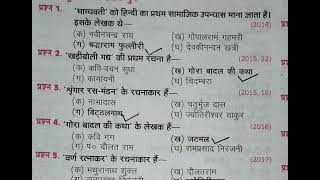 प्रश्न 1. 'भाग्यवती' को हिन्दी का प्रथम सामाजिक उपन्यास माना जाता है।
इसके लेखक हैं— (2016)
(क) नवीनचन्द्र राय (ख) गोपालराम गहमरी
(ग) श्रद्धाराम फुल्लौरी (घ) देवकीनन्दन खत्री
प्रश्न 2. 'खड़ीबोली गद्य' की प्रथम रचना है— (2015, 22)
(क) कवि-वचन सुधा (ख) गोरा बादल की कथा
(ग) कामायनी (घ) चिदम्बरा
प्रश्न 3. 'शृंगार रस-मंडन' के रचनाकार हैं— (2015, 18)
(क) नाभादास (ख) चतुर्भुज दास
(ग) बिट्ठलनाथ (घ) ज्योतिरीश्वर ठाकुर
प्रश्न 4. 'गोरा बादल की कथा' के लेखक हैं— (2016)
(क) कवि गंग (ख) जटमल
(ग) पं० दौलत राम (घ) रामप्रसाद निरंजनी
प्रश्न 5. 'वर्ण रत्नाकर' के रचनाकार हैं— (2017)
(क) मथुरानाथ शुक्ल (ख) दौलतराम